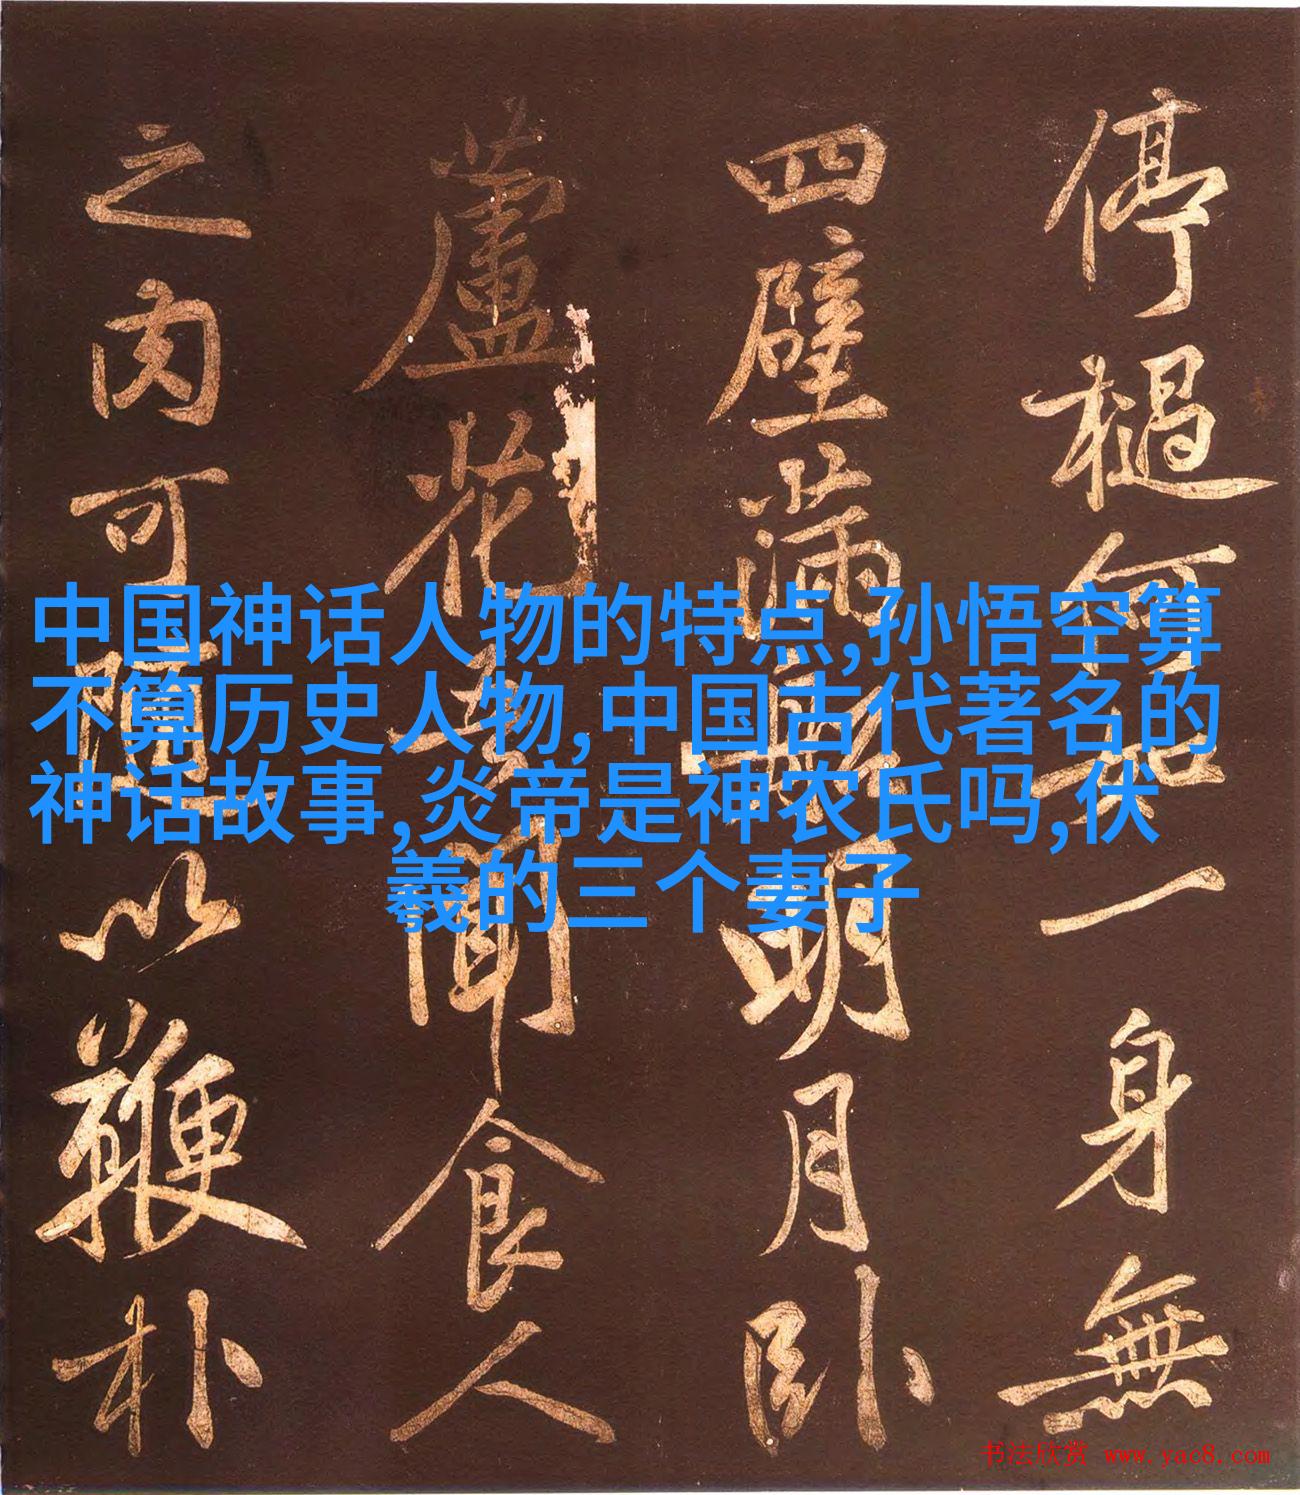 停檛何如一身無
四壁滿船明月卧
蘆花吾聞食人
之肉可隨以鞭朴
中国神话人物的特点,孙悟空算
不算历史人物,中国古代著名的
神话故事,炎帝是神农氏吗,伏
羲的三个妻子
书法欣赏 www.yac8.com